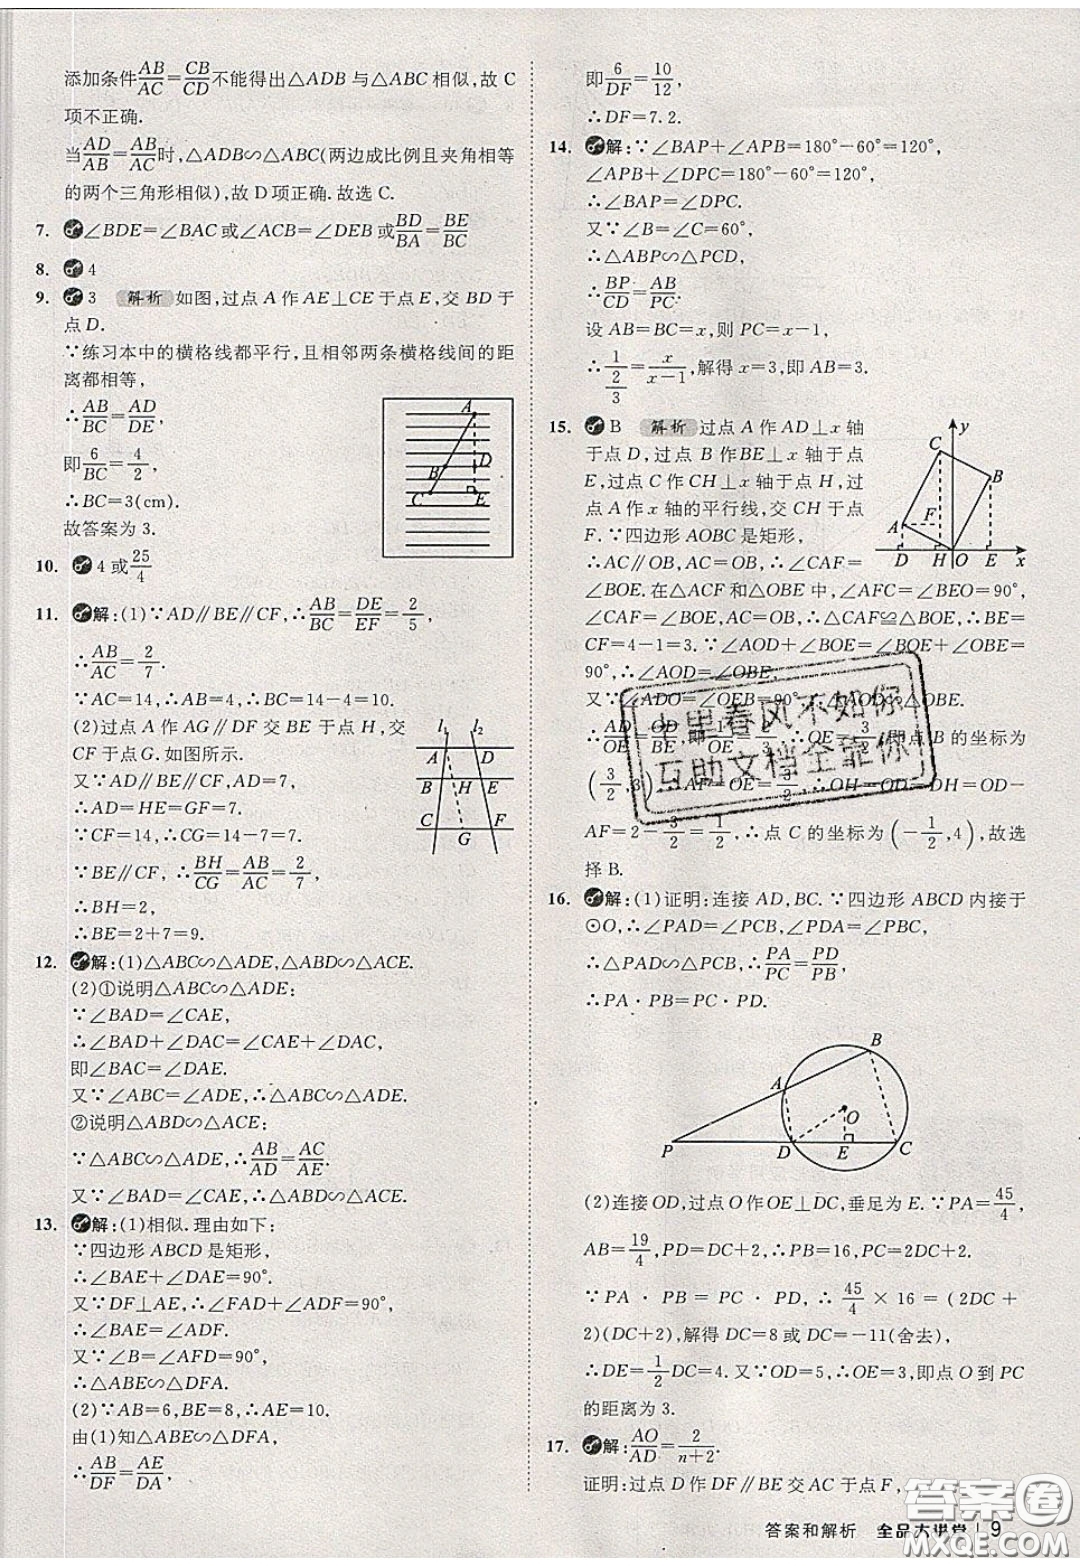 添加条件AB/AC=CB/CD不能得出△ADB与△ABC相似,故C
项不正确.
当AD/AB=AB/AC时,△ADB∽△ABC(两边成比例且夹角相等
的两个三角形相似),故D项正确.故选C.
7. ∠BDE=∠BAC或∠ACB=∠DEB或BD/BA=BE/BC
8. 4
9. 3 解析 如图,过点A作AE⊥CE于点E,交BD于
点D.
∵练习本中的横格线都平行,且相邻两条横格线间的距
离都相等,
∴AB/BC=AD/DE,
即6/BC=4/2,
∴BC=3(cm).
故答案为3.
A
B
D
C
E
10. 4或25/4
11. 解:(1)∵AD∥BE∥CF,∴AB/BC=DE/EF=2/5,
∴AB/AC=2/7.
∵AC=14,∴AB=4,∴BC=14-4=10.
(2)过点A作AG∥DF交BE于点H,交
CF于点G.如图所示.
又∵AD∥BE∥CF,AD=7,
∴AD=HE=GF=7.
∵CF=14,∴CG=14-7=7.
∵BE∥CF,∴BH/CG=AB/AC=2/7,
∴BH=2,
∴BE=2+7=9.
l₁ l₂
A D
B H E
C G F
12. 解:(1)△ABC∽△ADE,△ABD∽△ACE.
(2)①说明△ABC∽△ADE:
∵∠BAD=∠CAE,
∴∠BAD+∠DAC=∠CAE+∠DAC,
即∠BAC=∠DAE.
又∵∠ABC=∠ADE,∴△ABC∽△ADE.
②说明△ABD∽△ACE:
∵△ABC∽△ADE,∴AB/AD=AC/AE.
又∵∠BAD=∠CAE,∴△ABD∽△ACE.
13. 解:(1)相似.理由如下:
∵四边形ABCD是矩形,
∴∠BAE+∠DAE=90°.
又∵DF⊥AE,∴∠FAD+∠ADF=90°,
∴∠BAE=∠ADF.
又∵∠B=∠AFD=90°,
∴△ABE∽△DFA.
(2)∵AB=6,BE=8,∴AE=10.
由(1)知△ABE∽△DFA,
∴AB/DF=AE/DA,
即6/DF=10/12,
∴DF=7.2.
14. 解:∵∠BAP+∠APB=180°-60°=120°,
∠APB+∠DPC=180°-60°=120°,
∴∠BAP=∠DPC.
又∵∠B=∠C=60°,
∴△ABP∽△PCD,
∴BP/CD=AB/PC.
设AB=BC=x,则PC=x-1,
∴1/(2/3)=x/(x-1),解得x=3,即AB=3.
15. B 解析 过点A作AD⊥x轴
于点D,过点B作BE⊥x轴于点
E,过点C作CH⊥x轴于点H,过
点A作x轴的平行线,交CH于点
F.∵四边形AOBC是矩形,
∴AC∥OB,AC=OB,∴∠CAF=
∠BOE.在△ACF和△OBE中,∠AFC=∠BEO=90°,
∠CAF=∠BOE,AC=OB,∴△CAF≌△BOE,∴BE=
CF=4-1=3.∵∠AOD+∠BOE=∠BOE+∠OBE=
90°,∴∠AOD=∠OBE.
又∵∠ADO=∠OEB=90°,∴△AOD∽△OBE,
∴AD/OE=OD/BE,即1/OE=2/3,∴OE=3/2,即点B的坐标为
(3/2,3),∴AF=OE=3/2,∴DH=3/2,∴OH=OD-
AF=2-3/2=1/2,∴点C的坐标为(-1/2,4),故选
择B.
y
C
B
A F
D H O E x
16. 解:(1)证明:连接AD,BC.∵四边形ABCD内接于
⊙O,∴∠PAD=∠PCB,∠PDA=∠PBC,
∴△PAD∽△PCB,∴PA/PC=PD/PB,
∴PA·PB=PC·PD.
B
A
O
P D E C
(2)连接OD,过点O作OE⊥DC,垂足为E.∵PA=45/4,
AB=19/4,PD=DC+2,∴PB=16,PC=2DC+2.
∵PA·PB=PC·PD,∴45/4×16=(2DC+
2)(DC+2),解得DC=8或DC=-11(舍去),
∴DE=1/2DC=4.又∵OD=5,∴OE=3,即点O到PC
的距离为3.
17. 解:AO/AD=2/(n+2).
证明:过点D作DF∥BE交AC于点F,
七里春风不如你
互助文档全靠你
答案和解析 全品大讲堂 9
答案圈
MXQE.COM